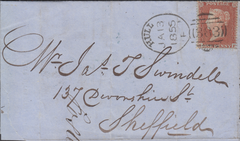 HULL
JA 13
1855
Mr Jas. T Swindell
137 Devonshire St
Sheffield